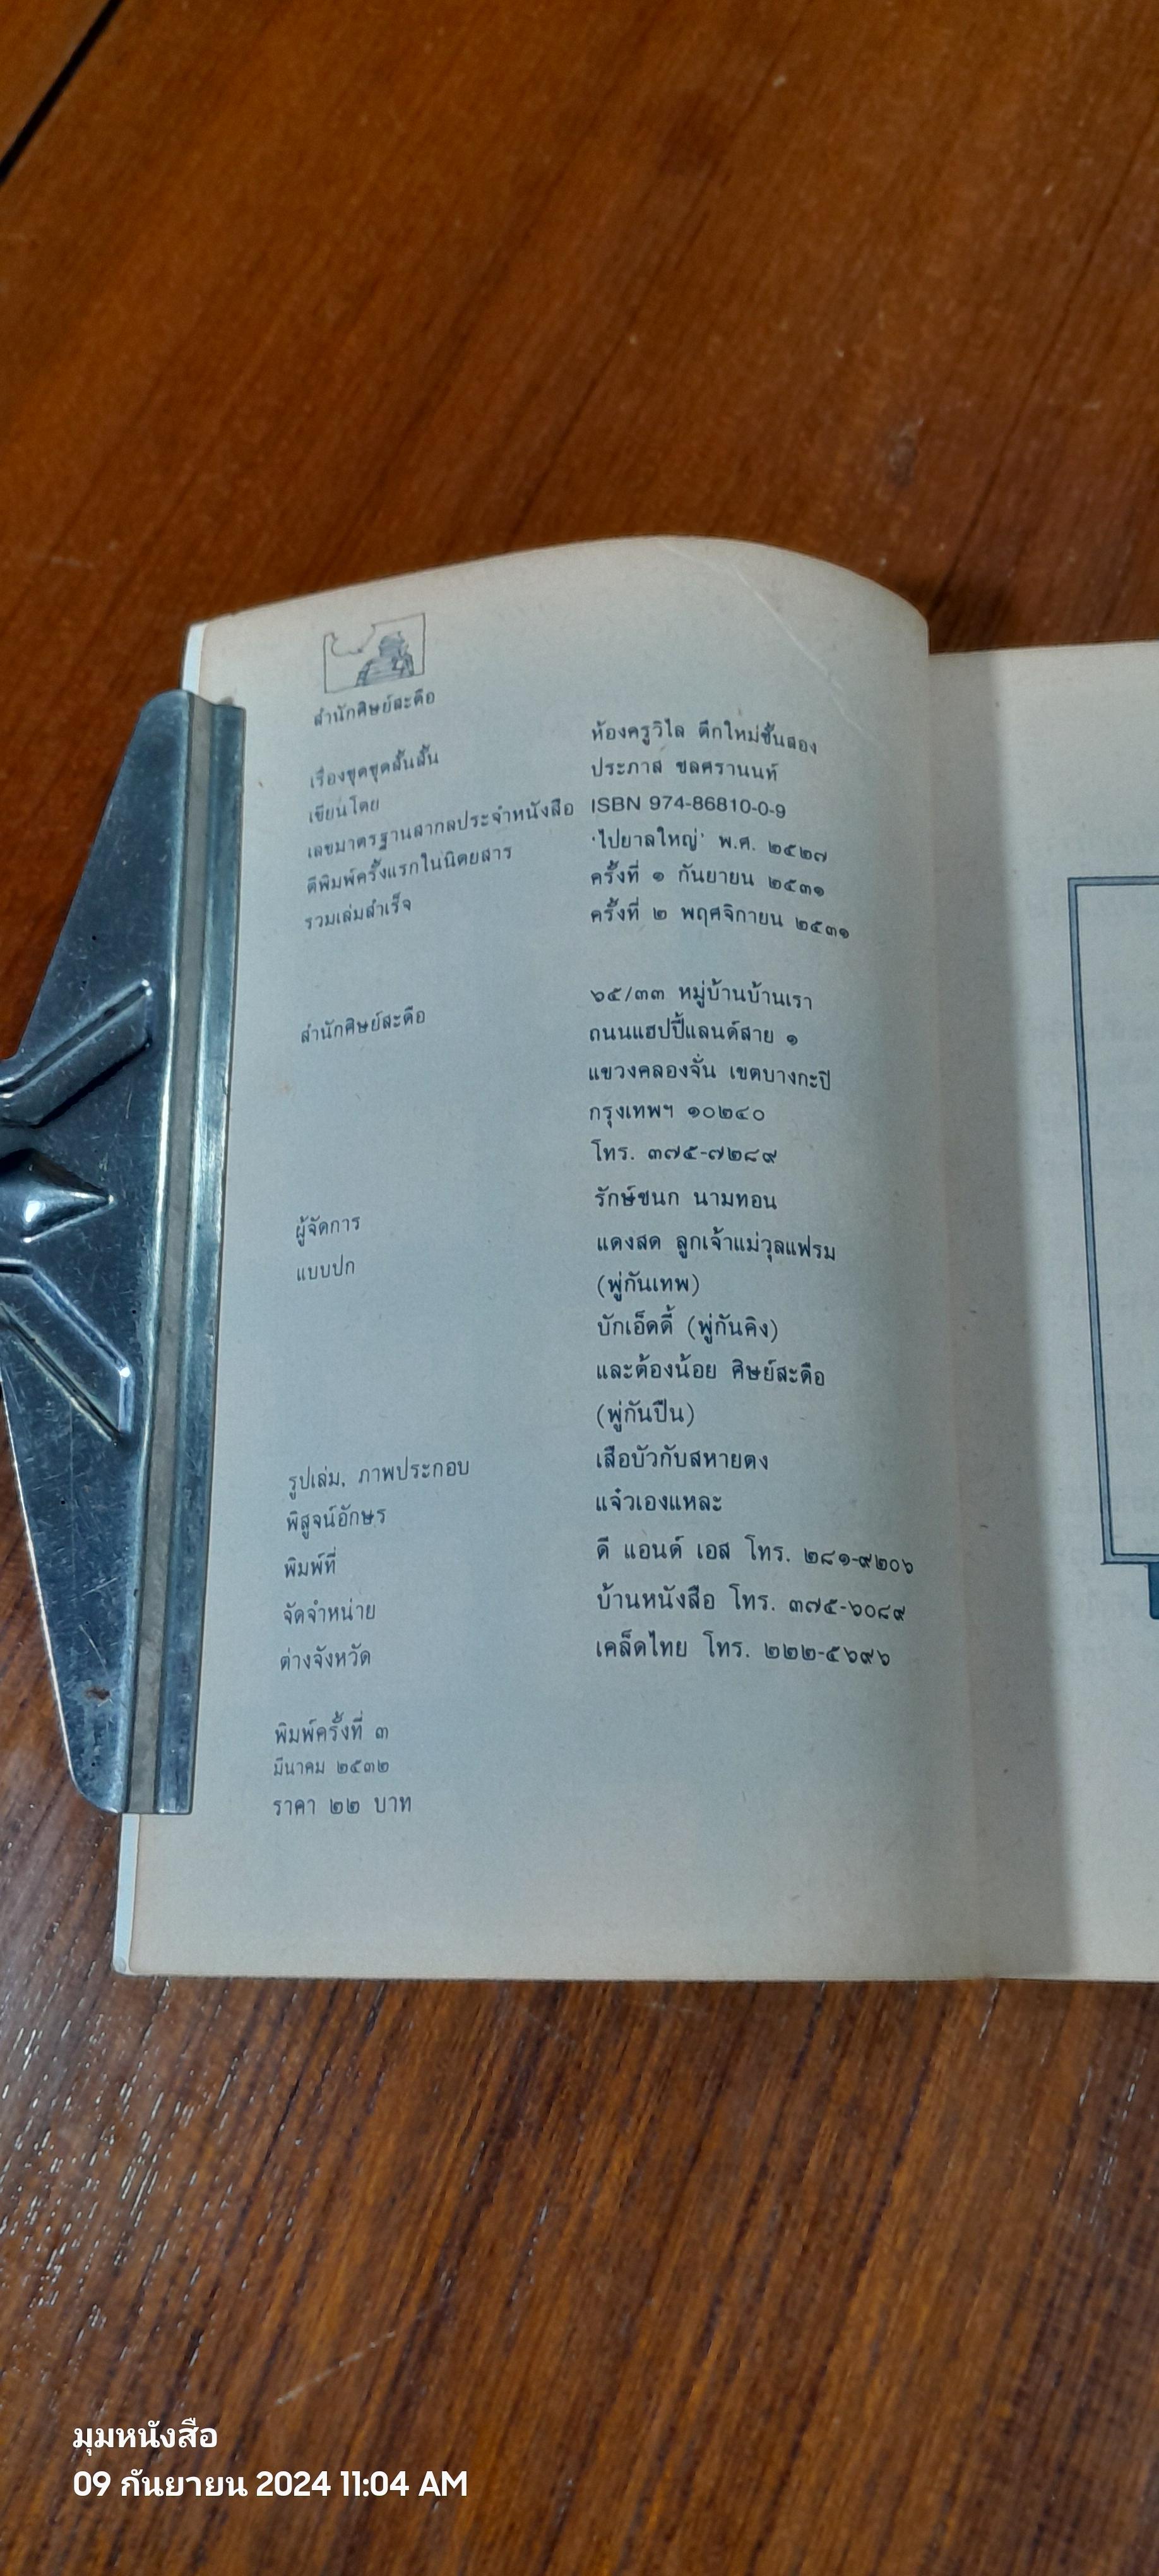 สำนักศิษย์สะดือ
เรื่องชุดชุดสั้นสั้น ห้องครูวิไล ตึกใหม่ชั้นสอง
เขียนโดย ประภาส ชลศรานนท์
เลขมาตรฐานสากลประจำหนังสือ ISBN 974-86810-0-9
ตีพิมพ์ครั้งแรกในนิตยสาร 'ไปยาลใหญ่' พ.ศ. ๒๕๒๗
รวมเล่มสำเร็จ ครั้งที่ ๑ กันยายน ๒๕๓๑
ครั้งที่ ๒ พฤศจิกายน ๒๕๓๑
สำนักศิษย์สะดือ ๖๕/๓๓ หมู่บ้านบ้านเรา
ถนนแฮปปี้แลนด์สาย ๑
แขวงคลองจั่น เขตบางกะปิ
กรุงเทพฯ ๑๐๒๔๐
โทร. ๓๗๕-๗๒๘๙
ผู้จัดการ รักษ์ชนก นามทอน
แบบปก แดงสด ลูกเจ้าแม่วุลแฟรม
(พู่กันเทพ)
บักเอ็ดดี้ (พู่กันคิง)
และต้องน้อย ศิษย์สะดือ
(พู่กันปืน)
รูปเล่ม, ภาพประกอบ เสือบัวกับสหายดง
พิสูจน์อักษร แจ๋วเองแหละ
พิมพ์ที่ ดี แอนด์ เอส โทร. ๒๘๑-๙๒๐๖
จัดจำหน่าย บ้านหนังสือ โทร. ๓๗๕-๖๐๘๙
ต่างจังหวัด เคล็ดไทย โทร. ๒๒๒-๕๖๙๖
พิมพ์ครั้งที่ ๓
มีนาคม ๒๕๓๒
ราคา ๒๒ บาท
มุมหนังสือ
09 กันยายน 2024 11:04 AM